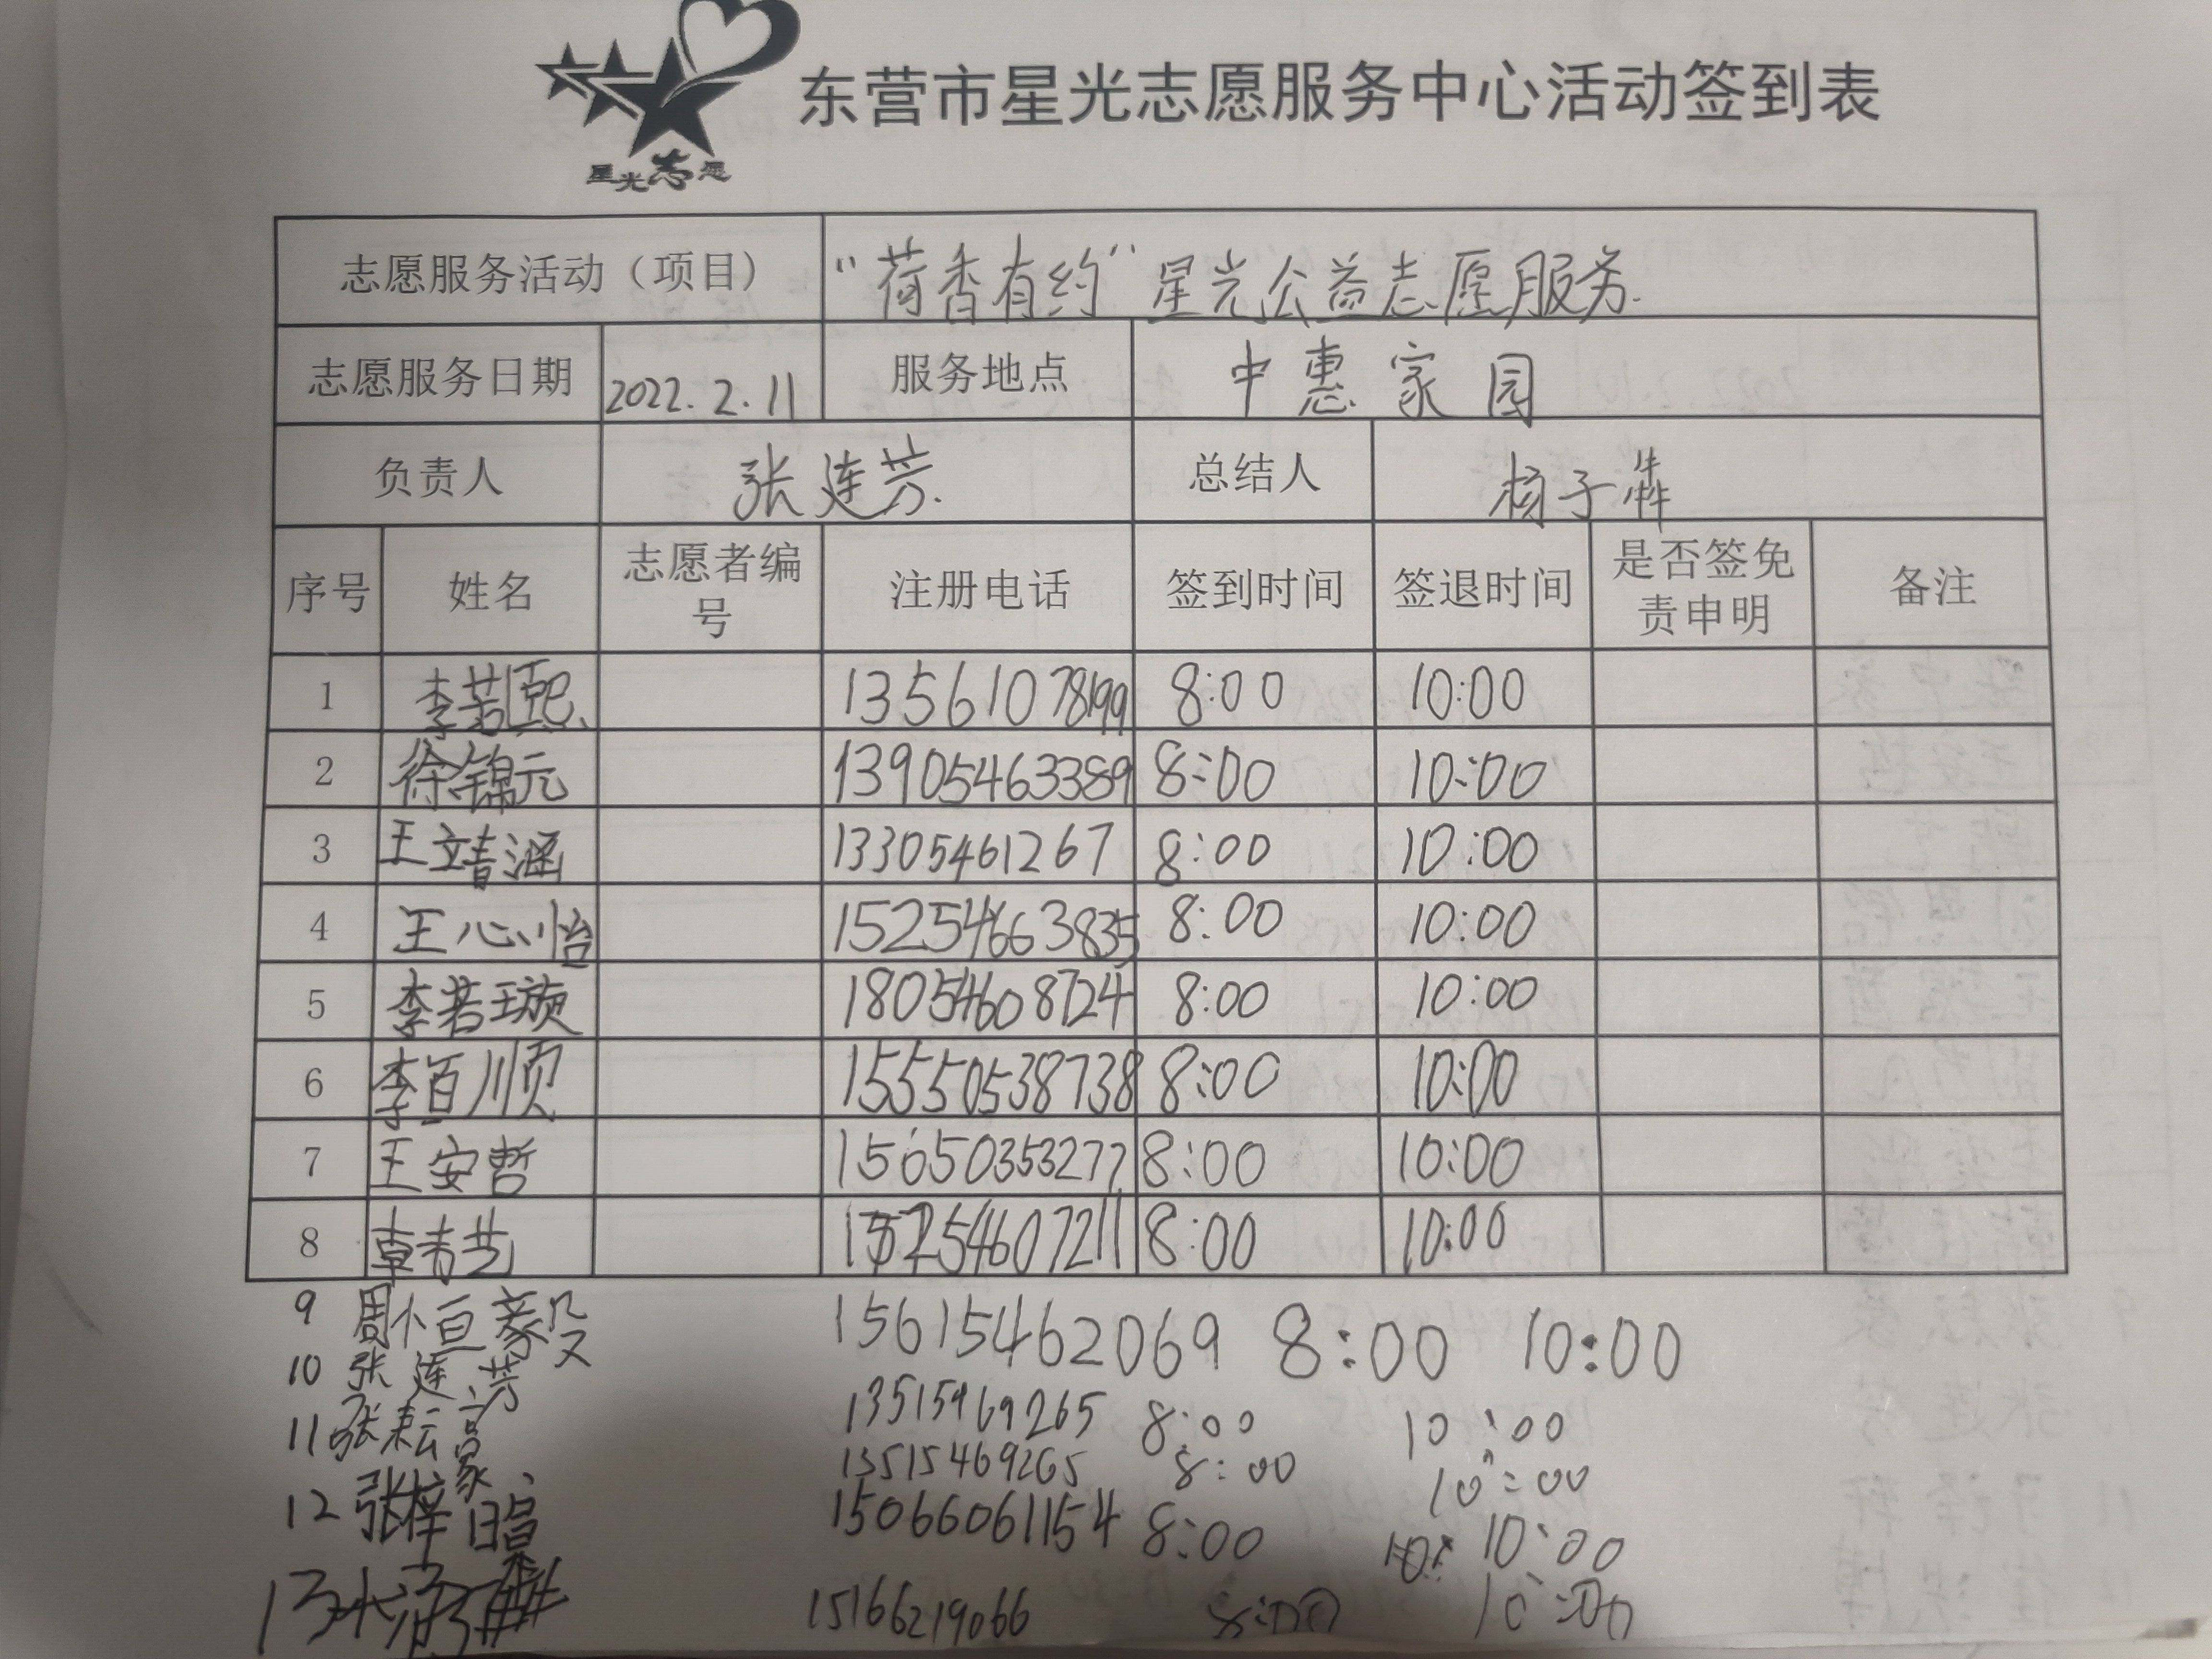 星光志愿
东营市星光志愿服务中心活动签到表
志愿服务活动（项目） “荷香有约”星光公益志愿服务.
志愿服务日期 2022.2.11 服务地点 中惠家园
负责人 张连芳. 总结人 杨子犇
序号 姓名 志愿者编号 注册电话 签到时间 签退时间 是否签免责申明 备注
1 李若熙 13561078199 8:00 10:00
2 徐锦元 13905463389 8:00 10:00
3 王靖涵 13305461267 8:00 10:00
4 王心怡 15254663835 8:00 10:00
5 李若璇 18054608724 8:00 10:00
6 李百顺 15550538738 8:00 10:00
7 王安哲 15650353277 8:00 10:00
8 15254607211 8:00 10:00
9 周恒毅 15615462069 8:00 10:00
10 张连芳 13515469265 8:00 10:00
11 张耘豪 13515469265 8:00 10:00
12 张梓晗 15066061154 8:00 10:00
13 15166219066 8:00 10:00